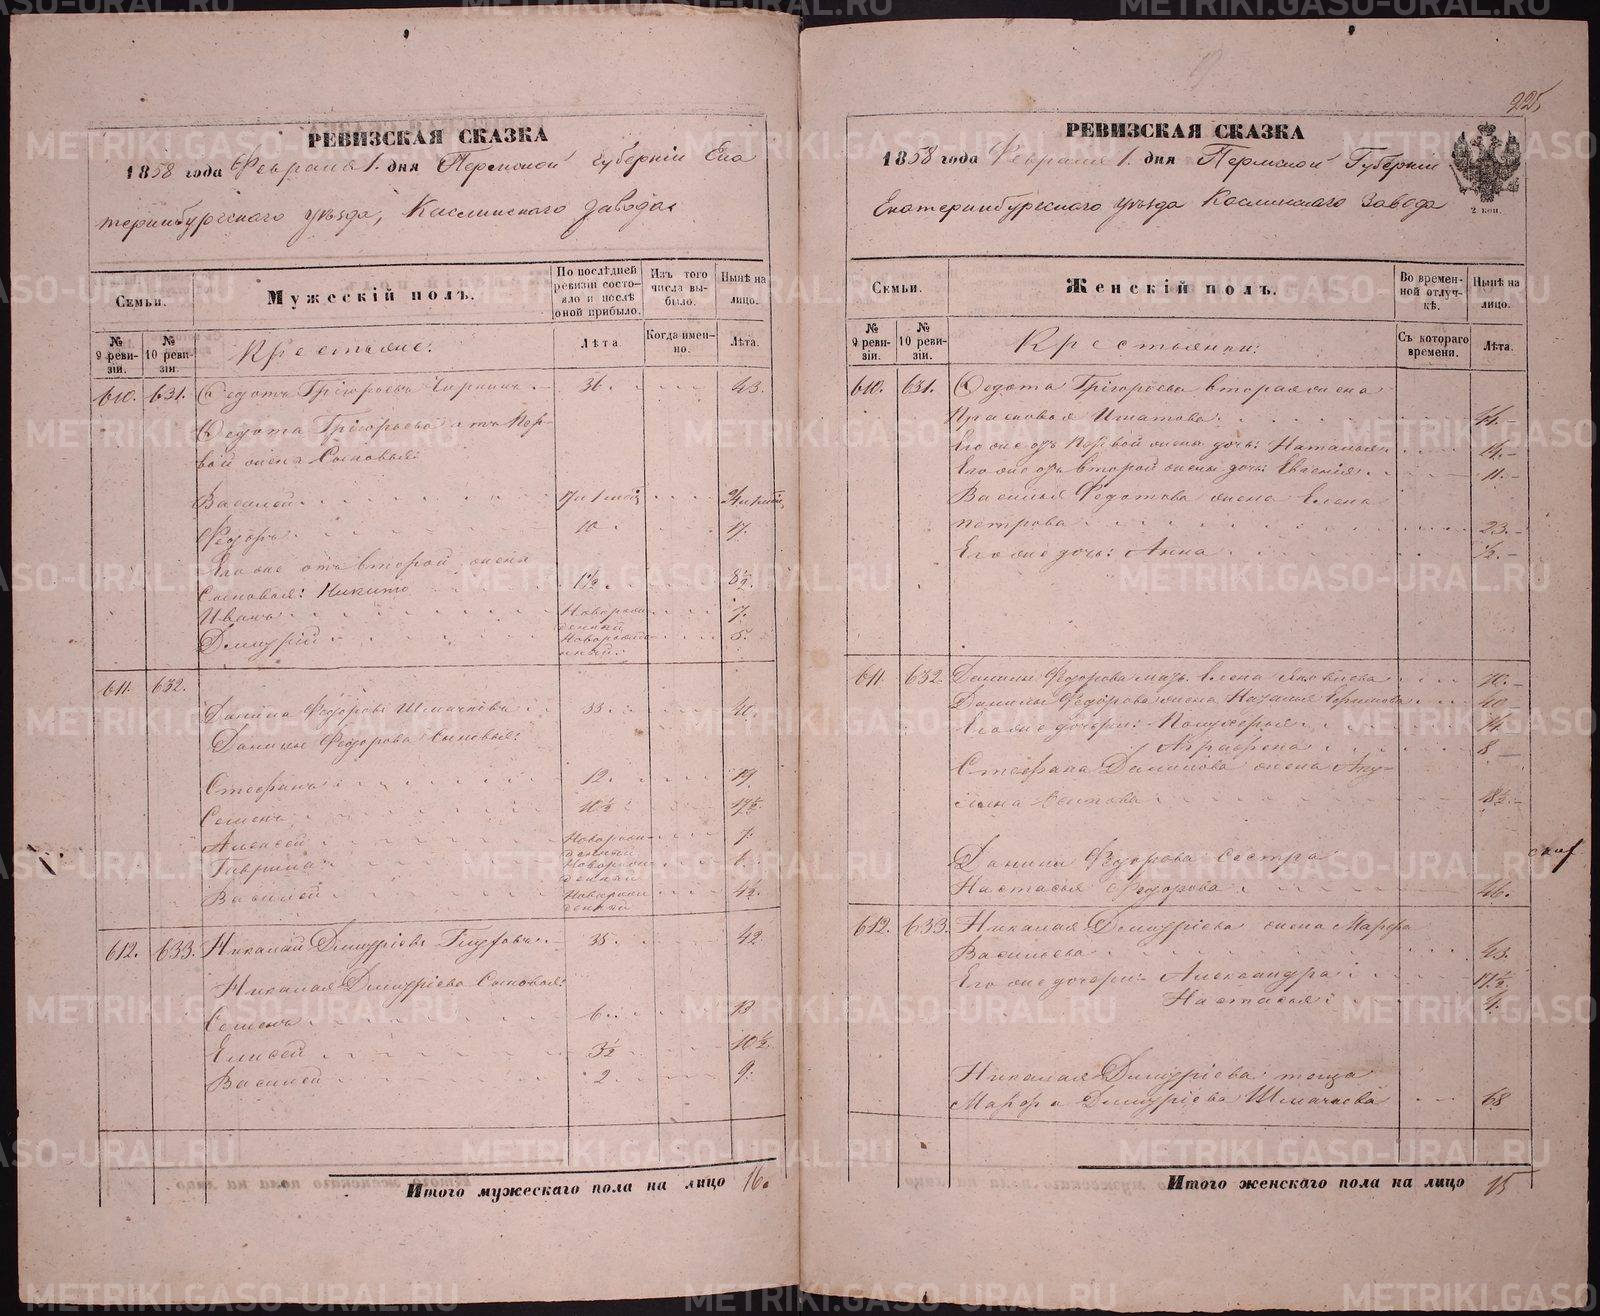 РЕВИЗСКАЯ СКАЗКА
1858 года Февраля 1. дня Пермской губерніи Ека
теринбургскаго уѣзда, Каслинскаго завода
Семьи.
Мужескій полъ.
По послѣдней ревизіи состояло и послѣ оной прибыло.
Изъ того числа выбыло.
Нынѣ на лицо.
№ 9 ревизіи.
№ 10 ревизіи
Крестьяне:
Лѣта
Когда именно.
Лѣта.
610. 631. Федотъ Григорьевъ 36. 43.
Федота Григорьева отъ пер-
вой жены сыновья:
Василей 24
Федоръ 10 17.
Его же отъ второй жены
сыновья: Никита 1½. 8½.
Иванъ Новорожденный 7.
Дмитрій Новорожденный: 5.
611. 632.
Данила Федоровъ Шмачковъ 33. 40.
Данилы Федорова сыновья:
Степанъ 12. 19
Семенъ 10½ 17½.
Алексей Новорожденный 7.
Гаврила Новорожденный
Василей Новорожденный 4½.
612. 633. Николай Дмитріевъ 35. 42.
Николая Дмитріева сыновья:
Семенъ 6. 13
Елисей 3½ 10½.
Василей 2 9.
Итого мужескаго пола на лицо 16.
225
РЕВИЗСКАЯ СКАЗКА
1858 года Февраля 1. дня Пермской Губерніи
2 коп.
Екатеринбургскаго уѣзда Каслинскаго Завода
Семьи.
Женскій полъ.
Во временной отлучкѣ.
Нынѣ на лицо.
№ 9 ревизіи.
№ 10 ревизіи.
Крестьянки:
Съ котораго времени.
Лѣта.
610. 631. Федота Григорьева вторая жена
Прасковья Игнатова 44.
Его же отъ первой жены дочь: Наталья 14.
Его же отъ второй жены дочь: Евгенія 11.
Василья Федотова жена Елена
петрова 23.
Его же дочь: Анна ½.
611. 632. Данилы Федорова мать Елена Яковлева 70.
Данилы Федорова жена Наталья 40
Его же дочери: 14.
Аграфена 8
Степана Данилова жена Аку-
лина 18½.
Данилы Федорова сестра
Настасья Федорова 46.
612. 633. Николая Дмитріева жена Марфа
Васильева 43.
Его же дочери: Александра 17½.
Настасья 4.
Николая Дмитріева теща
Марфа Дмитріева Шмачкова 68
Итого женскаго пола на лицо 15
METRIKI.GASO-URAL.RU